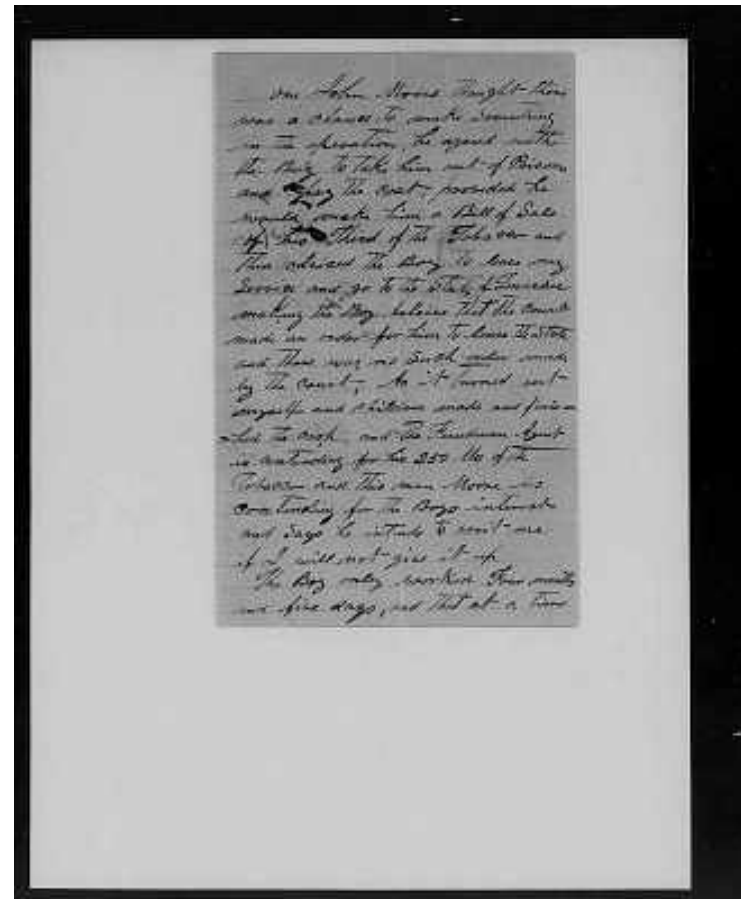 one John Moore thought there
was a chance to make something
in the operation, he agreed with
the Boy to take him out of Prison
and pay the cost, provided he
would make him a Bill of Sale
of his Third of the Tobacco and
then advised the Boy to leave my
Service and go to the State of
making the Boy believe that the Court
made an order for him to leave the State
and there was no such order made
by the Court, As it turned out
myself and children made and finis
hed the crop, and the Freedman Agent
is contending for the 250 lbs of the
Tobacco and this man Moore is
contending for the Boys interest
and Says he intends to me
if I will not give it up
The Boy only worked Four months
and five days, and that at a Time